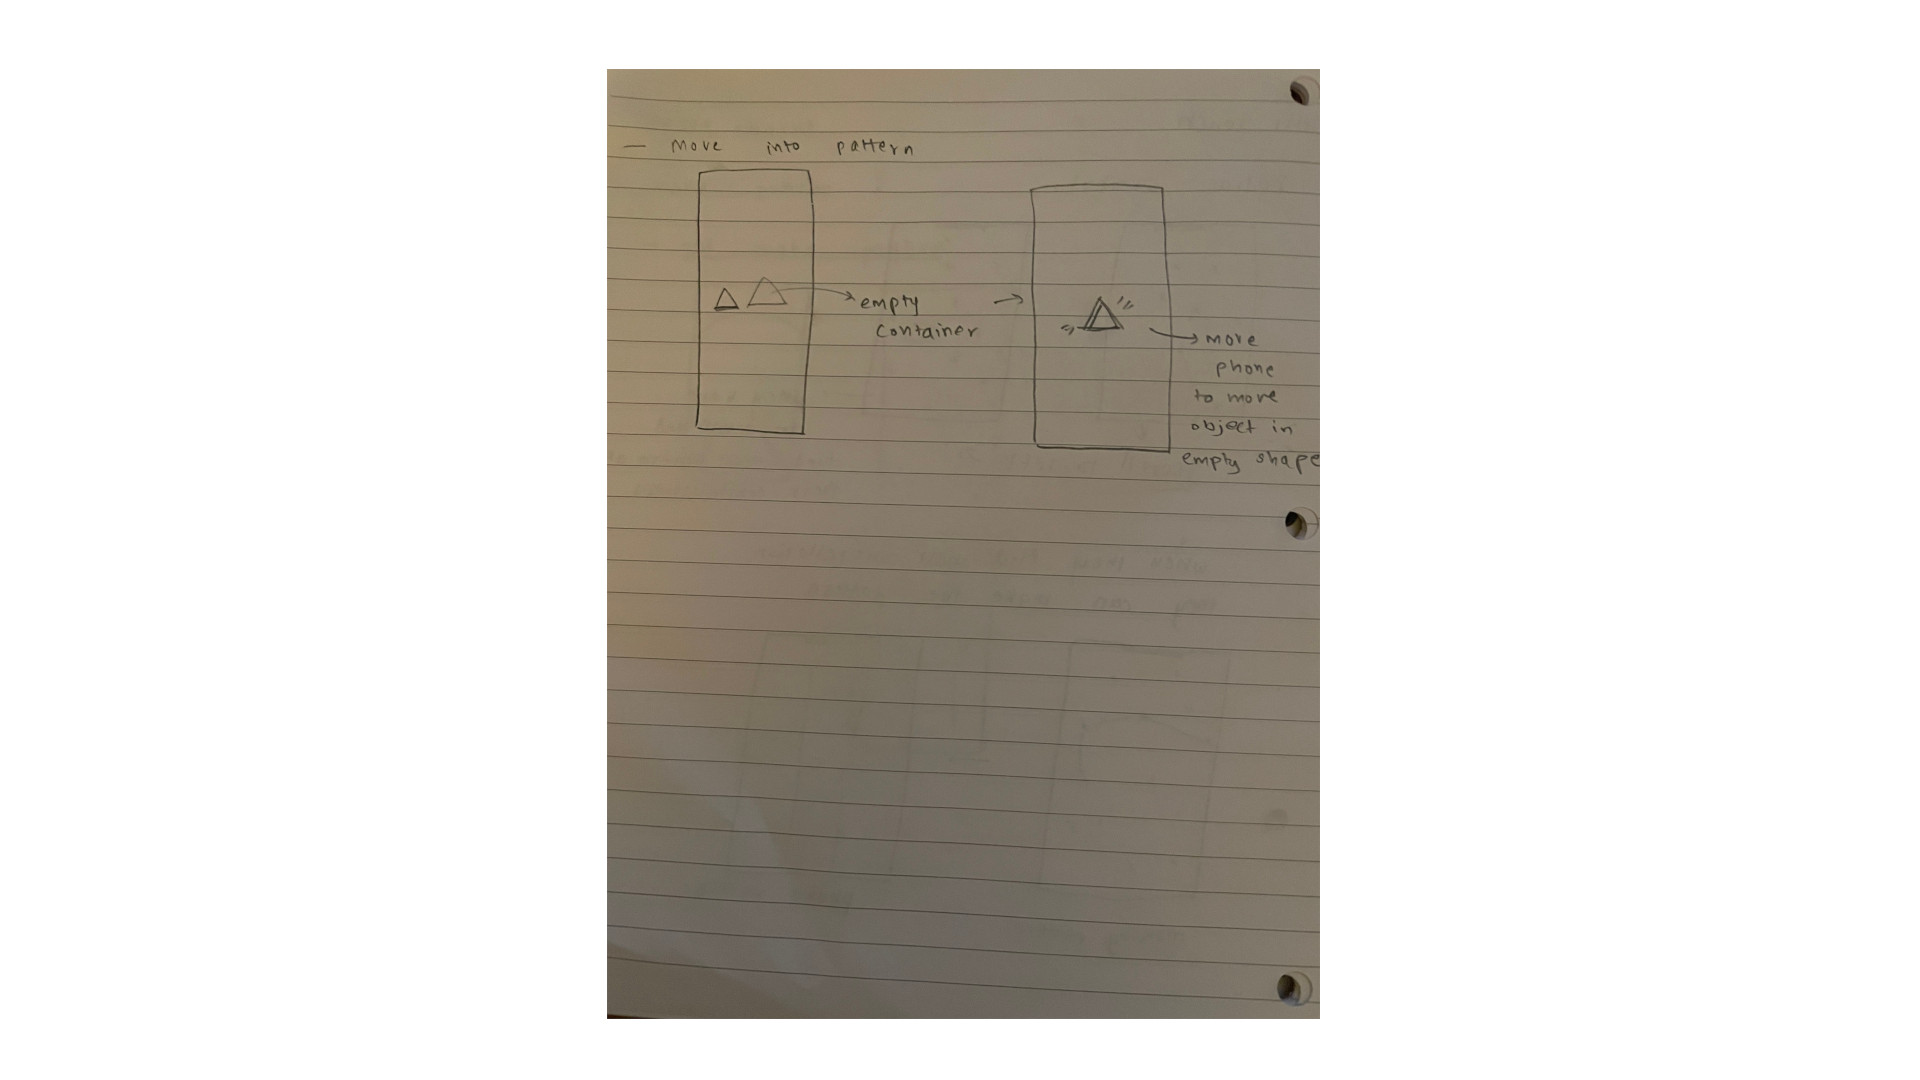 — Move into pattern
empty
container
move
phone
to move
object in
empty shape